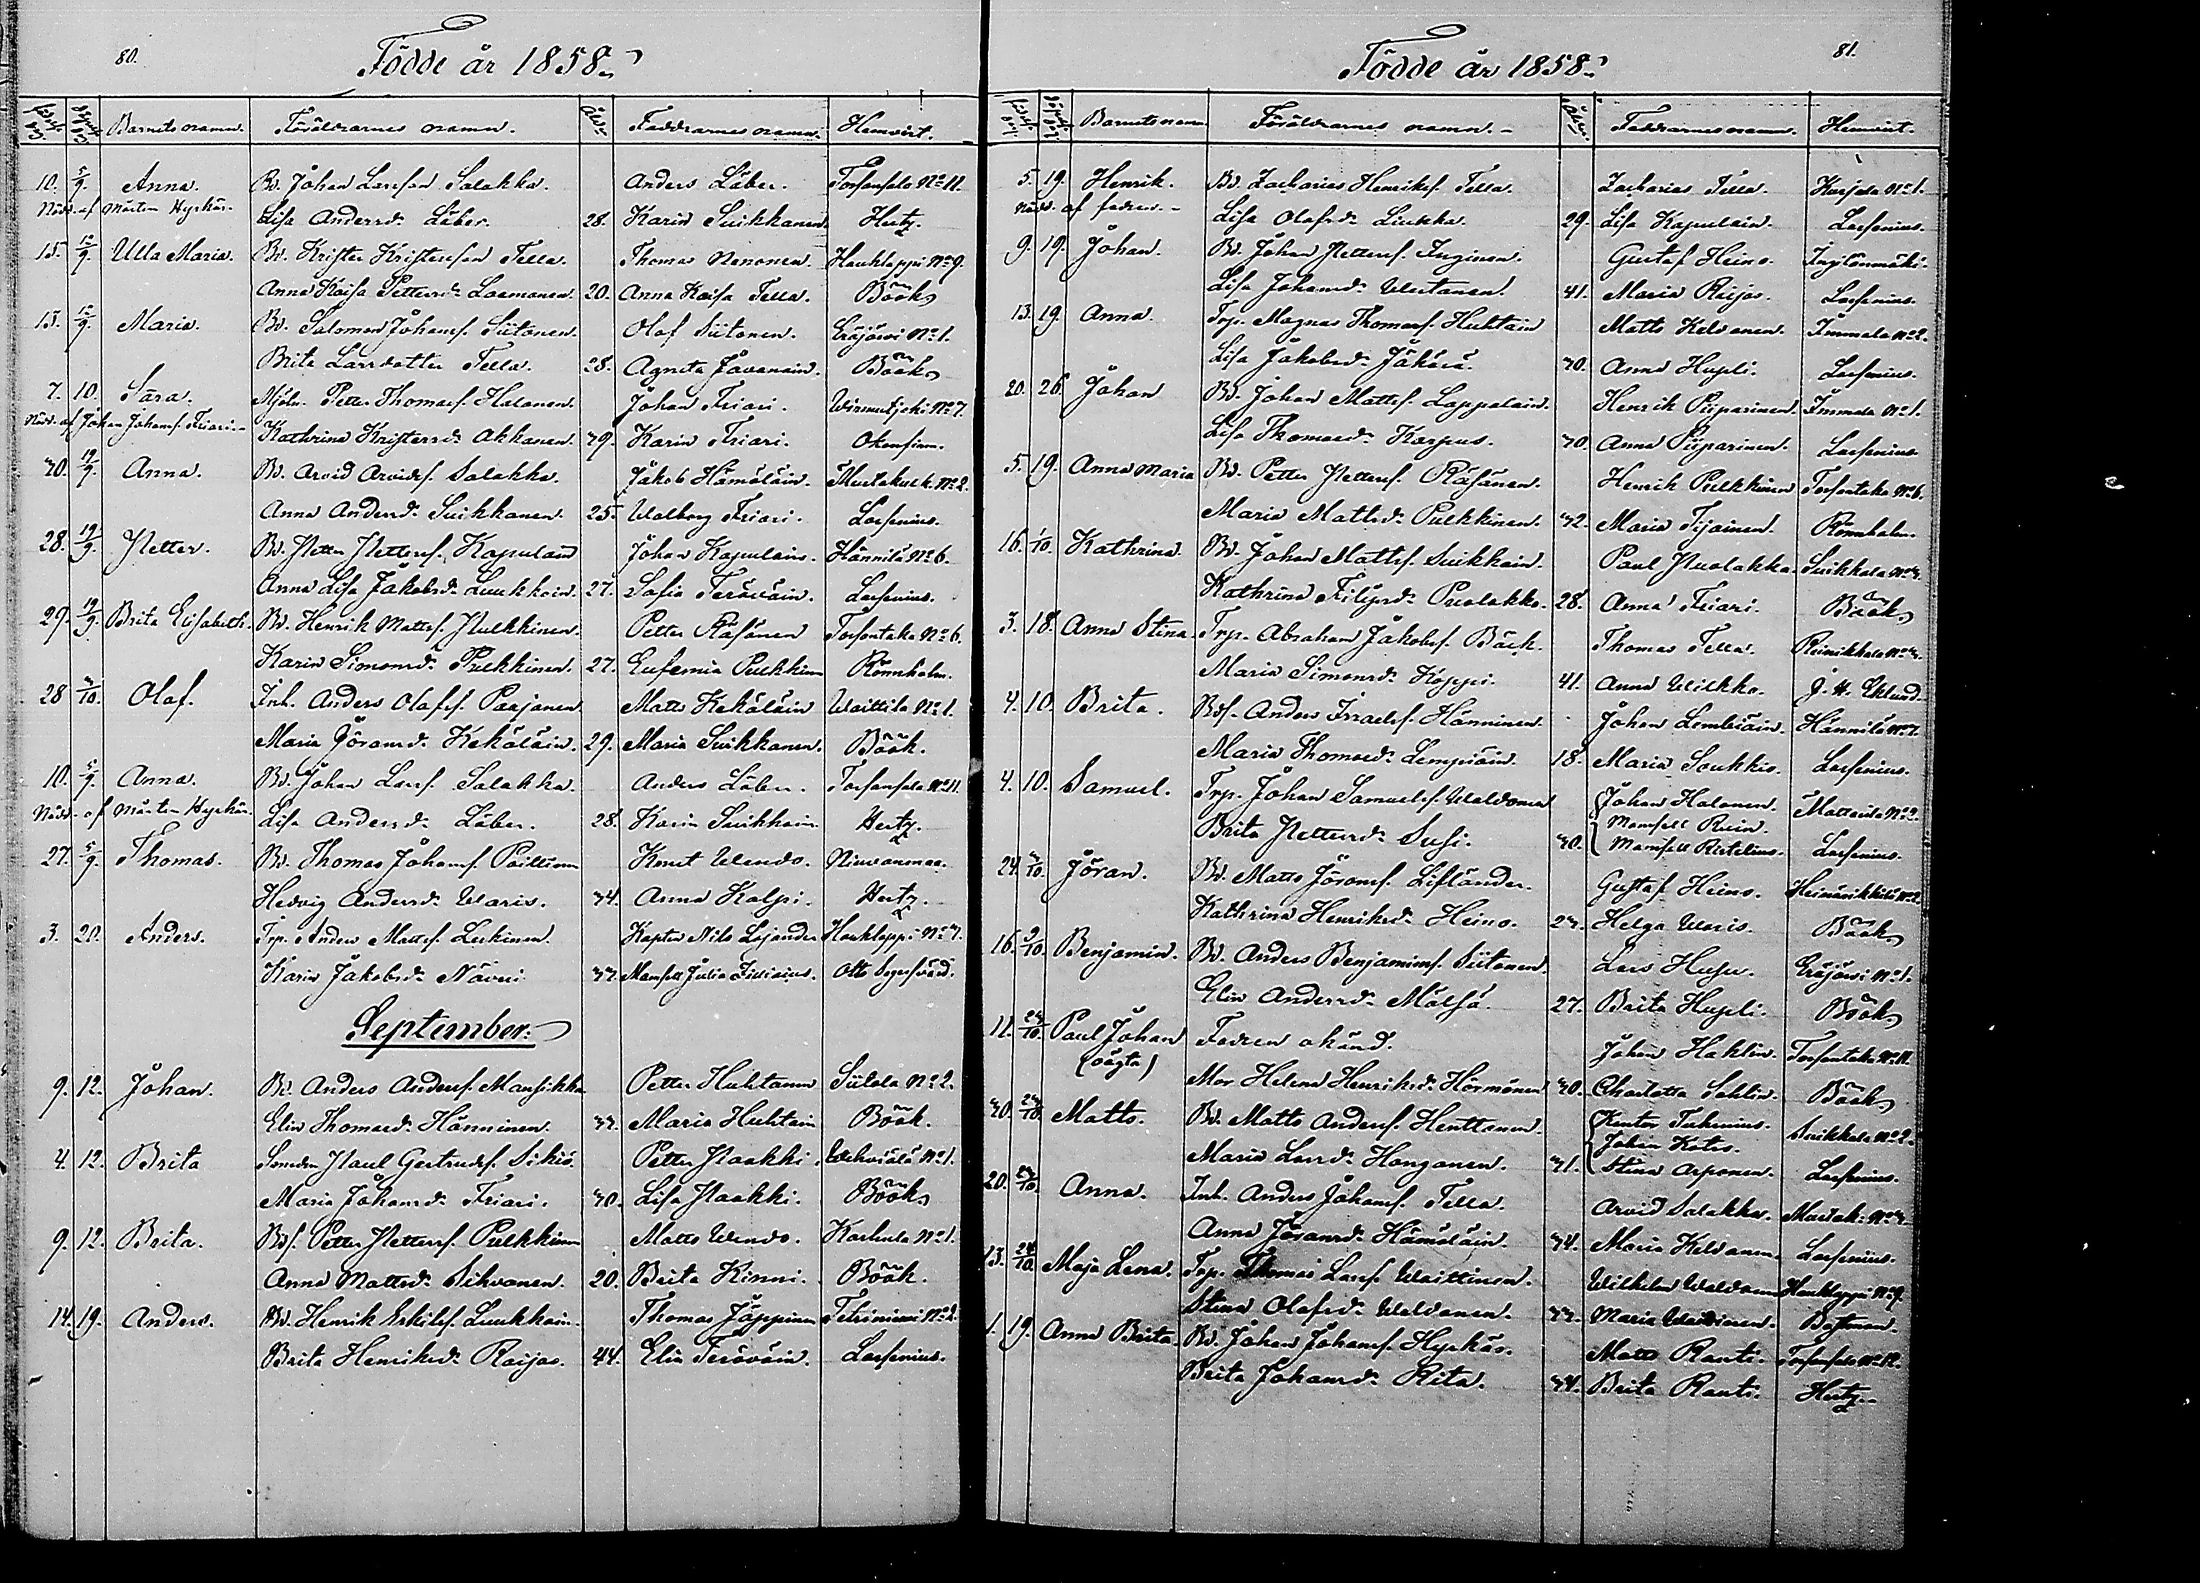 80.
Födde år 1858.
Barnets namn. Föräldrarnes namn. Ålder Faddrarnes namn. Hemvist.
10. 5/9. Anna. Bd. Johan Larsson Salakka. Anders Läber. Torsansalo No 11.
Nöd. af Mårten Hyrkäs. Lisa Andersd. Läber. 28. Karin Suikkanen. Hertz.
15. 12/9 Ulla Maria. Bd. Krister Kristersson Tella. Thomas Nenonen. Hauklappi No 9.
Anna Kaisa Pettersd. Loemanen. 20. Anna Kaisa Tella. Böök
13. 12/9. Maria. Bd. Salomon Johansf. Siitonen. Olof Siitonen. Eräjärvi No 1.
Brita Larsdotter Tella. 28. Agneta Javanain. Böök
7. 10. Sara. Mjöln. Petter Thomasf. Halonen. Johan Friari. Wirmutjoki No 7.
Nöd. af Johan Johansf. Friari. Kathrina Kristersd. Akkanen. 39. Karin Friari.
30. 19/9. Anna. Bd. Arvid Arvidsf. Salakka. Jakob Hämäläin. Mustakulk. No 2.
Anna Andersd. Suikkanen 25. Walborg Friari. Lorsenius.
28. 19/9. Petter. Bd. Petter Pettersf. Kapulain Johan Kapulain. Hännilä No 6.
Anna Lisa Jakobsd. Luukkain. 27. Sofia Teräväin. Lorsenius.
29. 19/9. Brita Elisabeth. Bd. Henrik Mattsf. Pulkkinen. Petter Räsänen Torsantaka No 6.
Karin Simonsd. Pulkkinen. 27. Eufemia Pulkkinen Rönnholm.
28 3/10. Olof. Inh. Anders Olofsf. Paajanen Matts Kekäläin Waittila No 1.
Maria Göransd. Kekäläin. 29. Maria Suikkanen. Böök.
10. 5/9. Anna. Bd. Johan Larsf. Salakka. Anders Läber. Torsansalo No 11.
Nöd. af Mårten Hyrkäs. Lisa Andersd. Läber. 28. Karin Suikkain Hertz.
27. 5/9. Thomas. Bd. Thomas Johansf. Poiltinen Knut Wendo.
Hedvig Andersd. Waris. 34. Anna Kolpi. Hertz.
3. 20. Anders. Trp. Anders Mattsf. Leskinen. Kapten Nils Lojander Hauklappi No 3.
Karin Jakobsd. Näveri 33. Mamsell Julia Otto Segersvärd.
September.
9. 12. Johan. Bd. Anders Andersf. Mansikka Petter Huhtanen Siitola No 2.
Elin Thomasd. Hänninen. 33. Maria Huhtain Böök.
4. 12. Brita Paul Gertrudsf. Sikiö. Petter Paakki. Wehviälä No 1.
Maria Johansd. Friari. 30. Lisa Paakki. Böök
9. 12. Brita. Bdf. Petter Pettersf. Pulkkinen Matts Wendo. Karhula No 1.
Anna Mattsd. Sihvonen. 20. Brita Kinni. Böök.
14. 19. Anders. Bd. Henrik Eskilsf. Luukkain. Thomas Jäppinen Tetriniemi No 2.
Brita Henriksd. Raijas. 44. Elin Teräväin. Lorsenius.
81.
Födde år 1858.
Barnets namn Föräldrarnes namn. Ålder Faddrarnes namn. Hemvist.
5. 19. Henrik. Bd. Zacharias Henriksf. Tella. Zacharias Tella. Karjala No 1.
Nöd. af fadren. Lisa Olofsd. Liukka. 29. Lisa Kapulain. Lorsenius.
9. 19. Johan. Bd. Johan Pettersf. Inginen. Gustaf Heino. Ingilänmäki.
Lisa Johansd. Wertanen. 41. Maria Raijas. Lorsenius.
13. 19. Anna. Trp. Magnus Thomasf. Huhtain Matts Kelvanen. Immala No 2.
Lisa Jakobsd. Jäkärä. 30. Anna Hupli. Lorsenius.
20. 26. Johan Bd. Johan Mattsf. Lappalain. Henrik Piiparinen. Immala No 1.
Lisa Thomasd. Karpus. 30. Anna Piiparinen. Lorsenius.
5. 19. Anna Maria Bd. Petter Pettersf. Räsänen. Henrik Pulkkinen Torsantaka No 6.
Maria Mattsd. Pulkkinen. 32. Maria Tijainen. Rönnholm.
16. 1/10. Kathrina. Bd. Johan Mattsf. Suikkain. Paul Puolakka. Suikkala No 3.
Kathrina Filipsd. Puolakka. 28. Anna Friari. Böök
3. 18. Anna Stina. Trp. Abraham Jakobsf. Bäck. Thomas Tella.
Maria Simonsd. Koppi. 41. Anna Wilkko. J. H. Eklund.
4. 10. Brita. Bdf. Anders Israelsf. Hänninen. Johan Lembiäin. Hännilä No 7.
Maria Thomasd. Lempiäin. 18. Maria Soukkio. Lorsenius.
4. 10. Samuel. Trp. Johan Samuelsf. Waldonen Johan Halonen. Mattsula No 2.
Mamsell Rein.
Brita Pettersd. Susi. 30. Mamsell Ristelius. Lorsenius.
24. 3/10. Jöran. Bd. Matts Jöransf. Lifländer. Gustaf Heino.
Kathrina Henriksd. Heino. 23. Helga Waris. Böök
16. 9/10. Benjamin. Bd. Anders Benjaminsf. Siitonen. Lars Husu. Eräjärvi No 1.
Elin Andersd. Mälsä. 27. Brita Hupli. Böök
11. 23/10. Paul Johan Fadren okänd. Johan Hahlin. Torsantaka No 11.
(oägta)
Mor Helena Henriksd. Härmänen 30. Charlotta Sahlin. Böök
30. 23/10 Matts. Bd. Matts Andersf. Henttonen. Kantor Tuhenius. Suikkala No 2.
Johan Kotro.
Maria Larsd. Honganen. 31. Stina Arponen. Lorsenius.
20. 23/10. Anna. Inh. Anders Johansf. Tella. Arvid Salakka. Mustak. No 3.
Anna Jöransd. Hämäläin. 34. Maria Keldanen. Lorsenius.
13. 24/10 Maja Lena. Trp. Thomas Larsf. Waittinen. Wilhelm Waldonen Hauklappi No 9.
Stina Olofsd. Weldonen. 33. Maria Waittinen. Bastman.
1. 19. Anna Brita. Bd. Johan Johansf. Hyrkäs. Matts Ranti. Torsansalo No 12.
Brita Johansd. Rita. 34. Brita Ranti. Hertz.